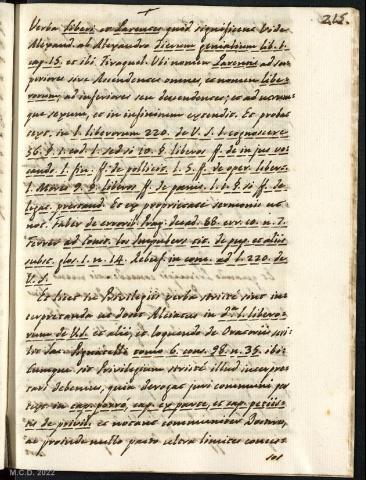 215.
Verba liberi, et Parentes quid significent vide
Alexand. ab Alexandro dierum genialium lib. 6.
cap. 15. et ibi Tiraquel. Uti nomen Parentis ad su-
periores sive Ascendentes omnes, et nomen liber-
rorum, ad inferiores seu descendentes, et ad utrum-
que sexum, et in infinitum extendit. Et probat
text. in l. liberorum 220. de V. S. l. cognoscere
56. §. 1. eod. l. sed si 10. §. liberos ff. de in jus vo-
cando. l. fin. ff. de pollicit. l. 5. ff. de oper. libert.
l. Moris 9. §. liberos ff. de penis. l. 1. §. si ff. de
legat. præstand. Et ex proprietate sermonis
not. Faber de erroris Prag. decad. 88. err. 10. n. 7.
subst. glos. 1. n. 14. Rebuf. in com. ad l. 220. de
V. S.
Et licet in Privilegio verba strictè sint in-
terpretanda ut docet Alciatus in d. l. liberor-
rum de V. S. et alii, et loquendo de
tomo 6. cons. 98. n. 35. ibi:
cumque sit Privilegium strictè illud interpre-
tari debemus, quia derogat juri communi
text. in cap. porrò, cap. ex parte, et cap.
de privil. et notant communiter Doctores,
ac proinde nullo pacto ultra limites conces-
sos
M.C.D. 2022